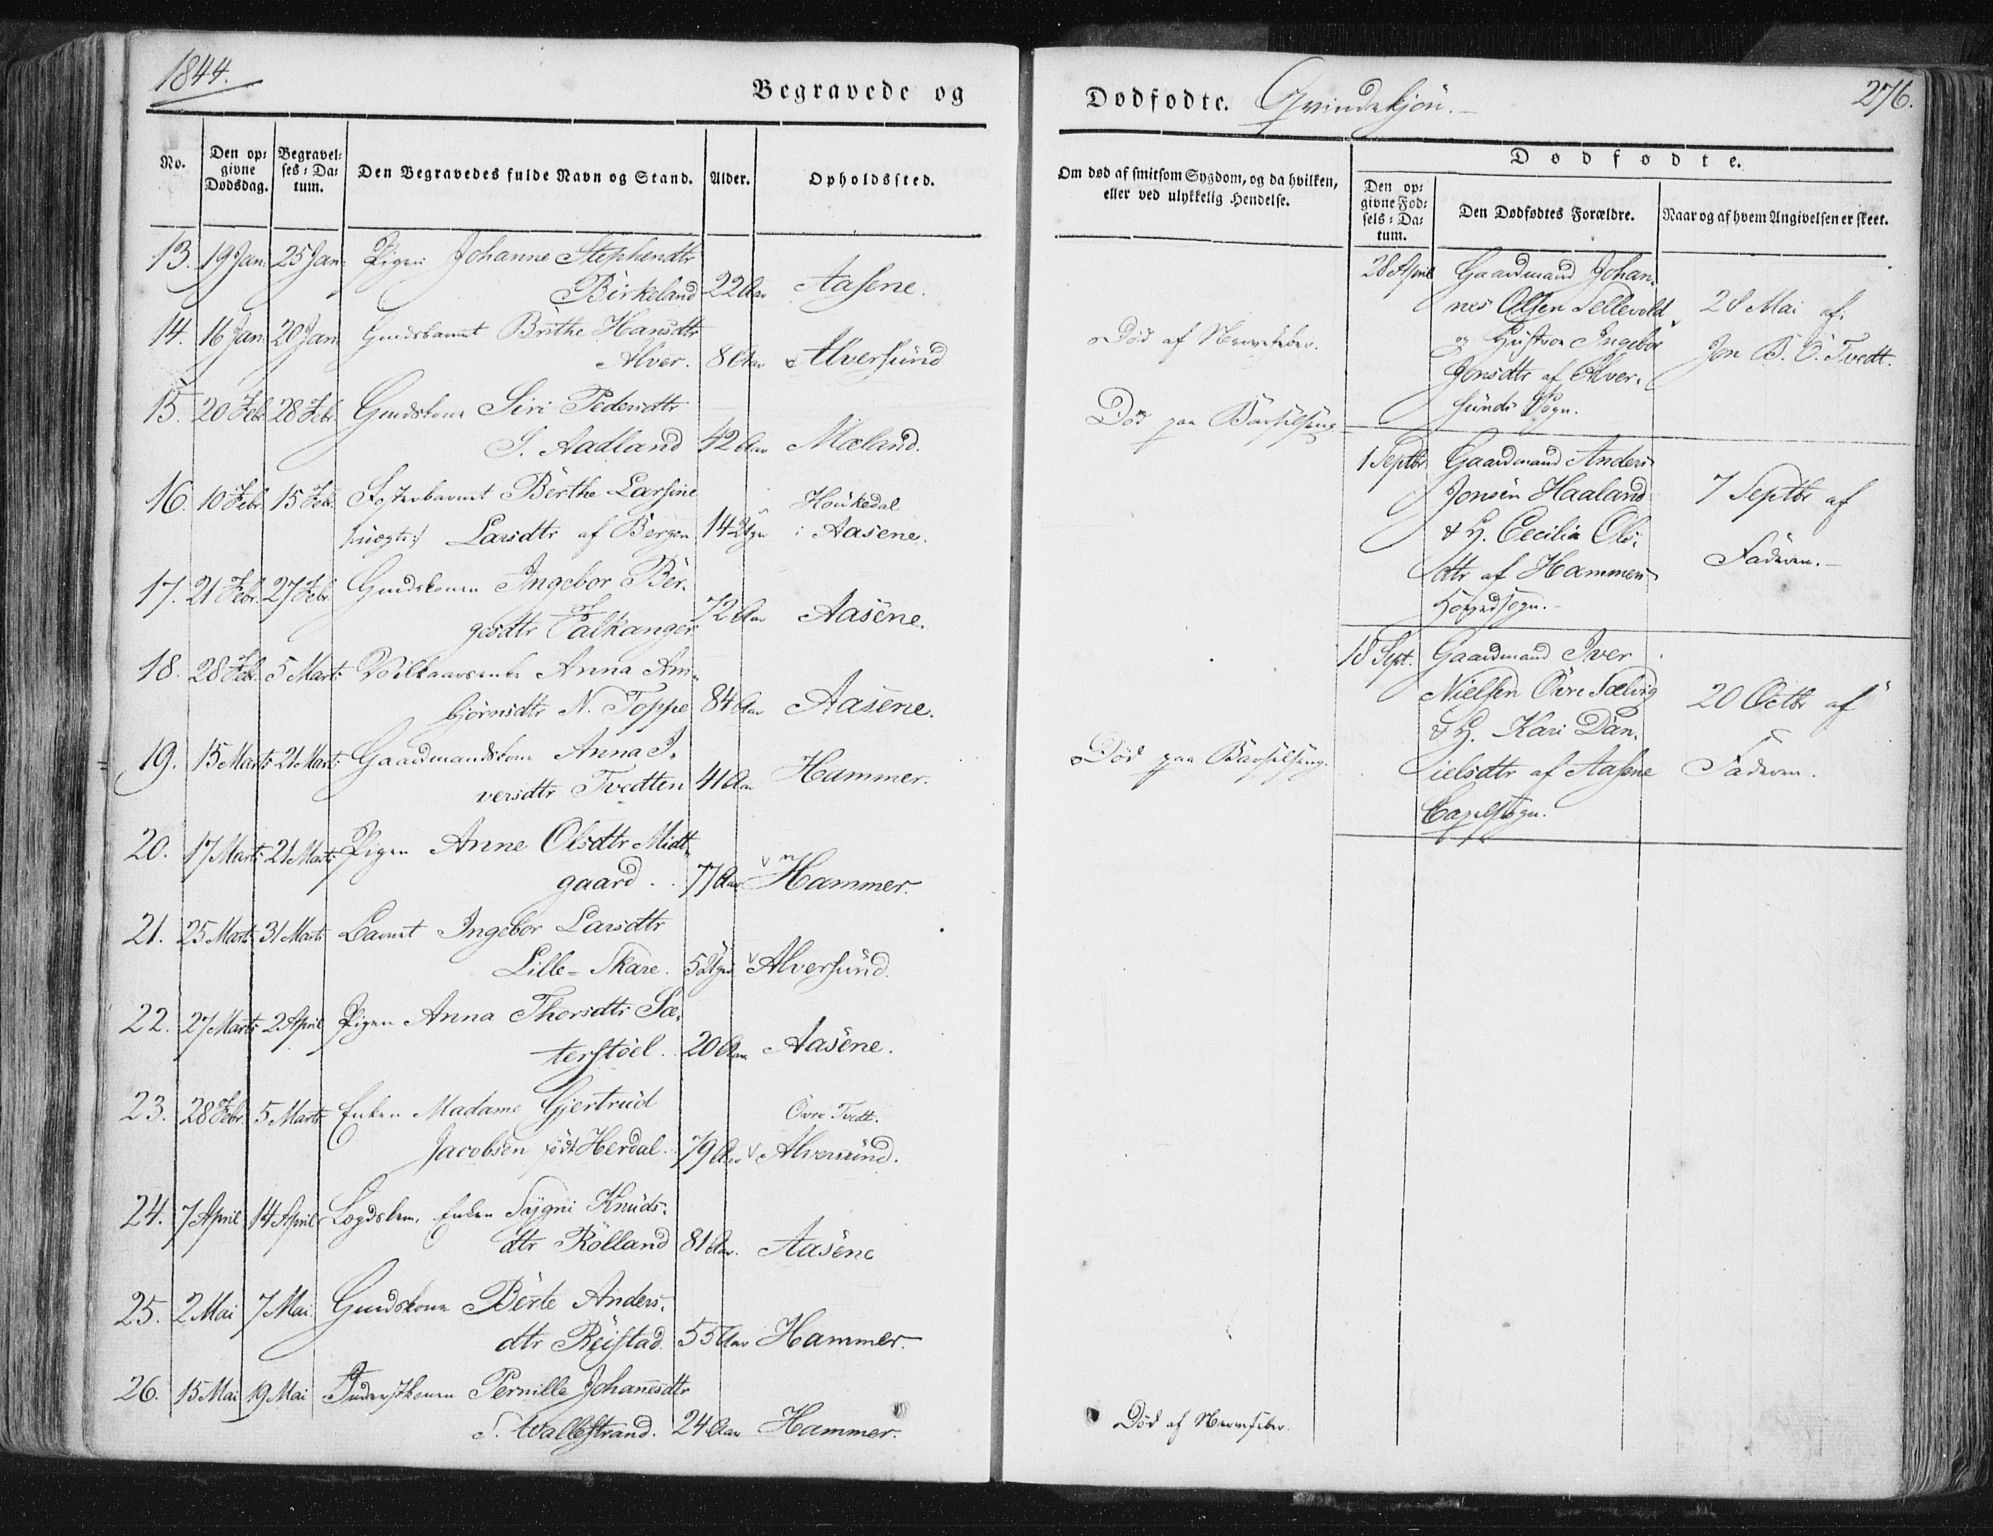 1844.
Begravede og
No.
Den op-
givne
Dødsdag.
Begravel-
ses-Da-
tum.
Den Begravedes fulde Navn og Stand.
Alder.
Opholdssted.
13. 19 Jan. 25 Jan. Pigen Johanne Stephensdtr
Birkeland 22 Aar Aasene.
14. 16 Jan. 20 Jan. Brithe Hansdtr
Alver. 8 Aar Alversund
15. 20 Febr. 28 Febr. Siri Pedersdtr
I. Aadland 42 Aar Mæland.
16. 10 Febr. 15 Febr. Berthe Larsine Houkedal
Larsdtr af Bergen 14 i Aasene.
17. 21 Febr. 27 Febr. Ingebor Bør-
gesdtr Falkanger 72 Aar Aasene.
18. 28 Feb. 5 Marts Anna Am-
bjørnsdtr N. Toppe 84 Aar Aasene.
19. 15 Marts 21 Marts Gaardmandskone Anna I-
versdtr Tvedten 41 Aar Hammer.
20. 17 Marts 21 Marts Pigen Anne Olsdtr Midt-
gaard. 77 Aar Hammer.
21. 25 Marts 31 Marts Barnet Ingebor Larsdtr
Lille-Skare. Alversund.
22. 27 Marts 2 April Pigen Anna Thorsdtr Sæ-
terstøel. 20 Aar Aasene.
23. 28 Febr. 5 Marts Enken Madame Gjertrud Øvre Tvedt.
Jacobsen født Herdal. 79 Aar Alversund.
24. 7 April 14 April Lægdslem, Enken Sygni Knuds-
dtr Rølland 81 Aar. Aasene
25. 2 Mai 7 Mai. Berte Anders-
dtr Reistad. 55 Aar Hammer.
26. 15 Mai 19 Mai Pernille Johannesdtr
S. Wallestrand. 24 Aar Hammer.
Dødfødte. Qvindekjøn.
276.
Om død af smitsom Sygdom, og da hvilken,
eller ved ulykkelig Hendelse.
Dødfødte.
Den op-
givne Fød-
sels-Da-
tum.
Den Dødfødtes Forældre.
Naar og af hvem Angivelsen er skeet.
Død af Nervefeber.
Død paa Barselseng.
Død paa Barselseng.
Død af Nervefeber.
28 April Gaardmand Johan-
nes Olsen Tellevold
og Hustroe Ingebor
Jonsdtr af Alver-
sunds Sogn.
28 Mai af
Jon B. Ø. Tvedt.
1 Septbr. Gaardmand Anders
Jonsen Haaland
& H. Cecilia Ols-
dtr af Hammers
Hovedsogn.
7 Septbr af
Faderen.
18 Sept. Gaardmand Iver
Nielsen Øvre Sælvig
& H. Kari Dan-
ielsdtr af Aasene
Capelsogn.
20 Octbr af
Faderen.